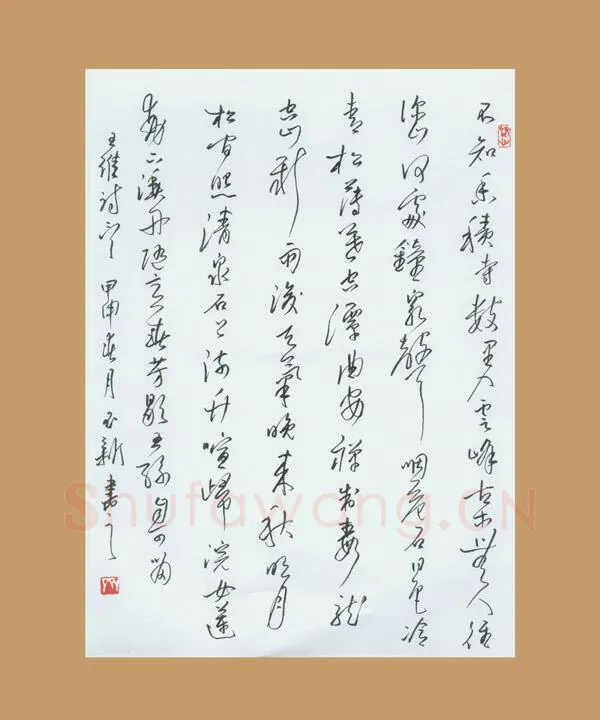 不知香積寺數里入雲峰古木無人徑
深山何處鐘泉聲咽危石日色冷
青松薄暮空潭曲安禪制毒龍
空山新雨後天氣晚來秋明月
松間照清泉石上流竹喧歸浣女蓮
動下漁舟隨意春芳歇王孫自可留
王維詩 甲申春月 新書
Shufawang.CN